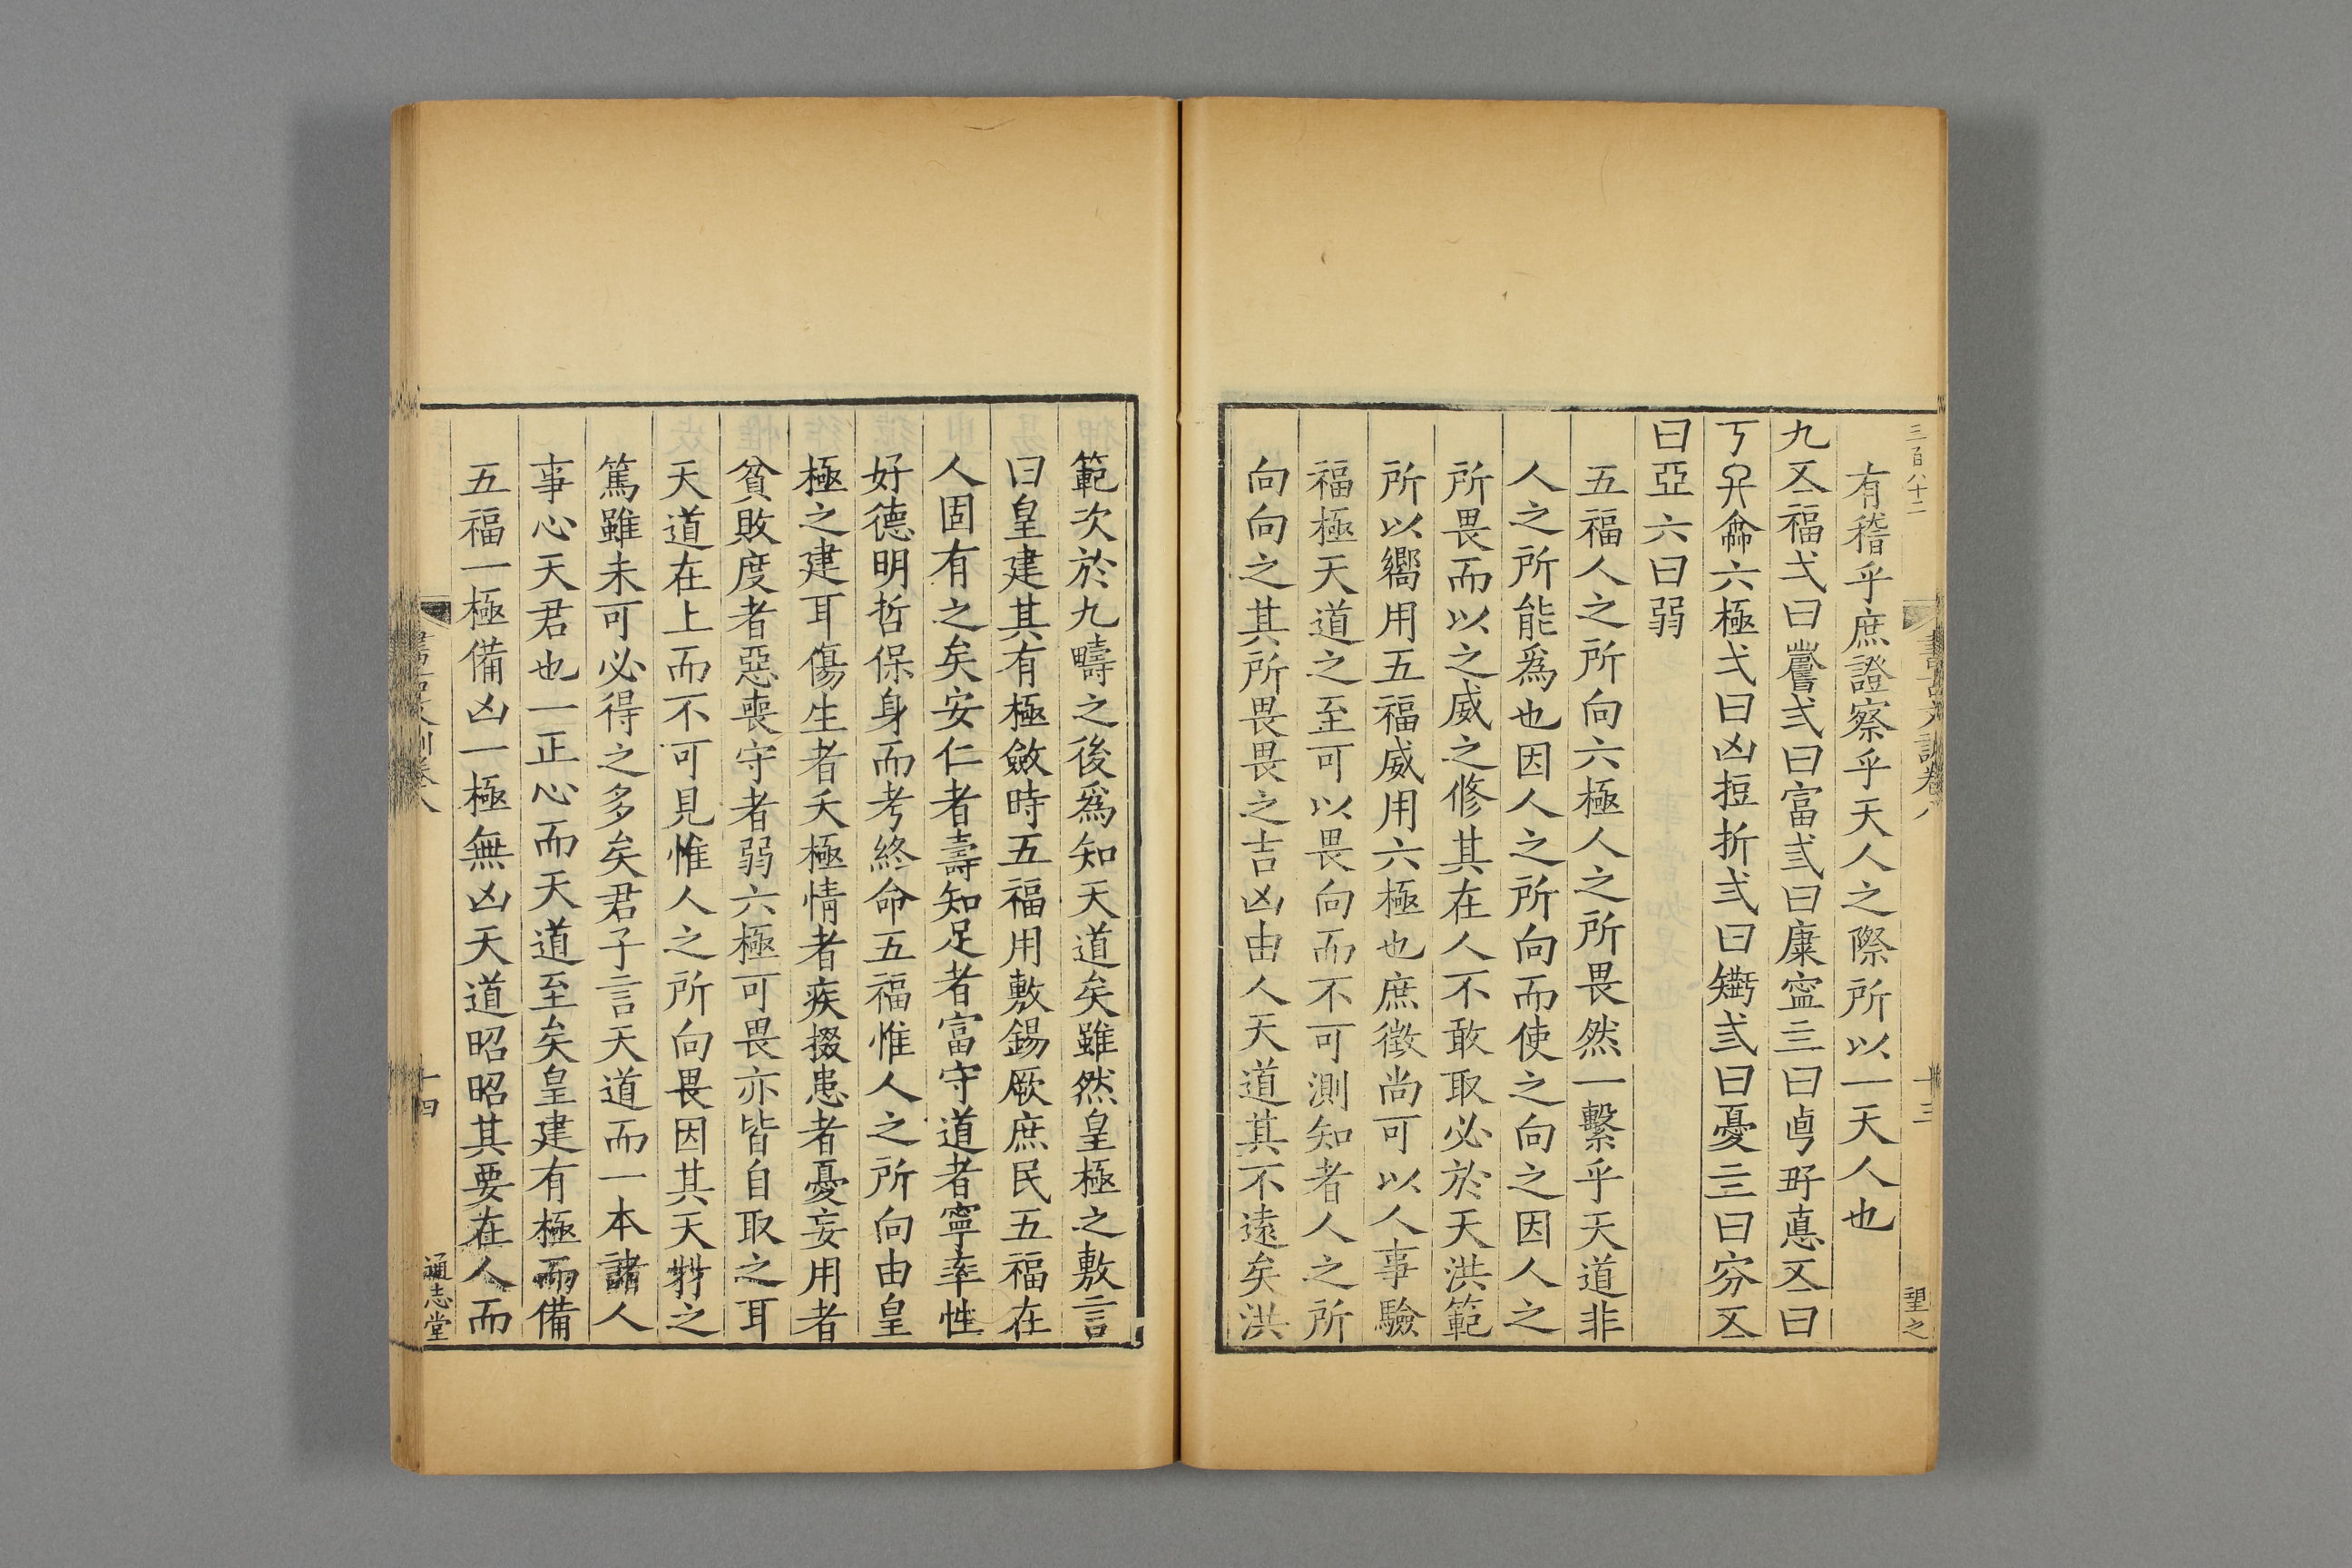 三百八十二
書古文訓卷八
十三
望之
有稽乎庶證察乎天人之際所以一天人也
九㐅福弌曰𠷎弍曰富弎曰康寍亖曰逌𡥆惪㐅曰
丂𠔃龠六極弌曰凶𢭃折弍曰𤶅弎曰憂亖曰穷㐅
曰亞六曰弱
五福人之所向六極人之所畏然一繫乎天道非
人之所能爲也因人之所向而使之向之因人之
所畏而以之威之修其在人不敢取必於天洪範
所以嚮用五福威用六極也庶徵尚可以人事驗
福極天道之至可以畏向而不可測知者人之所
向向之其所畏畏之吉凶由人天道其不遠矣洪
範次於九疇之後爲知天道矣雖然皇極之敷言
曰皇建其有極斂時五福用敷錫厥庶民五福在
人固有之矣安仁者壽知足者富守道者寧率性
好德明哲保身而考終命五福惟人之所向由皇
極之建耳傷生者夭極情者疾掇患者憂妄用者
貧敗度者惡喪守者弱六極可畏亦皆自取之耳
天道在上而不可見惟人之所向畏因其天㸦之
篤雖未可必得之多矣君子言天道而一本諸人
事心天君也一正心而天道至矣皇建有極而備
五福一極備凶一極無凶天道昭昭其要在人而
書古文訓卷八
十四
通志堂